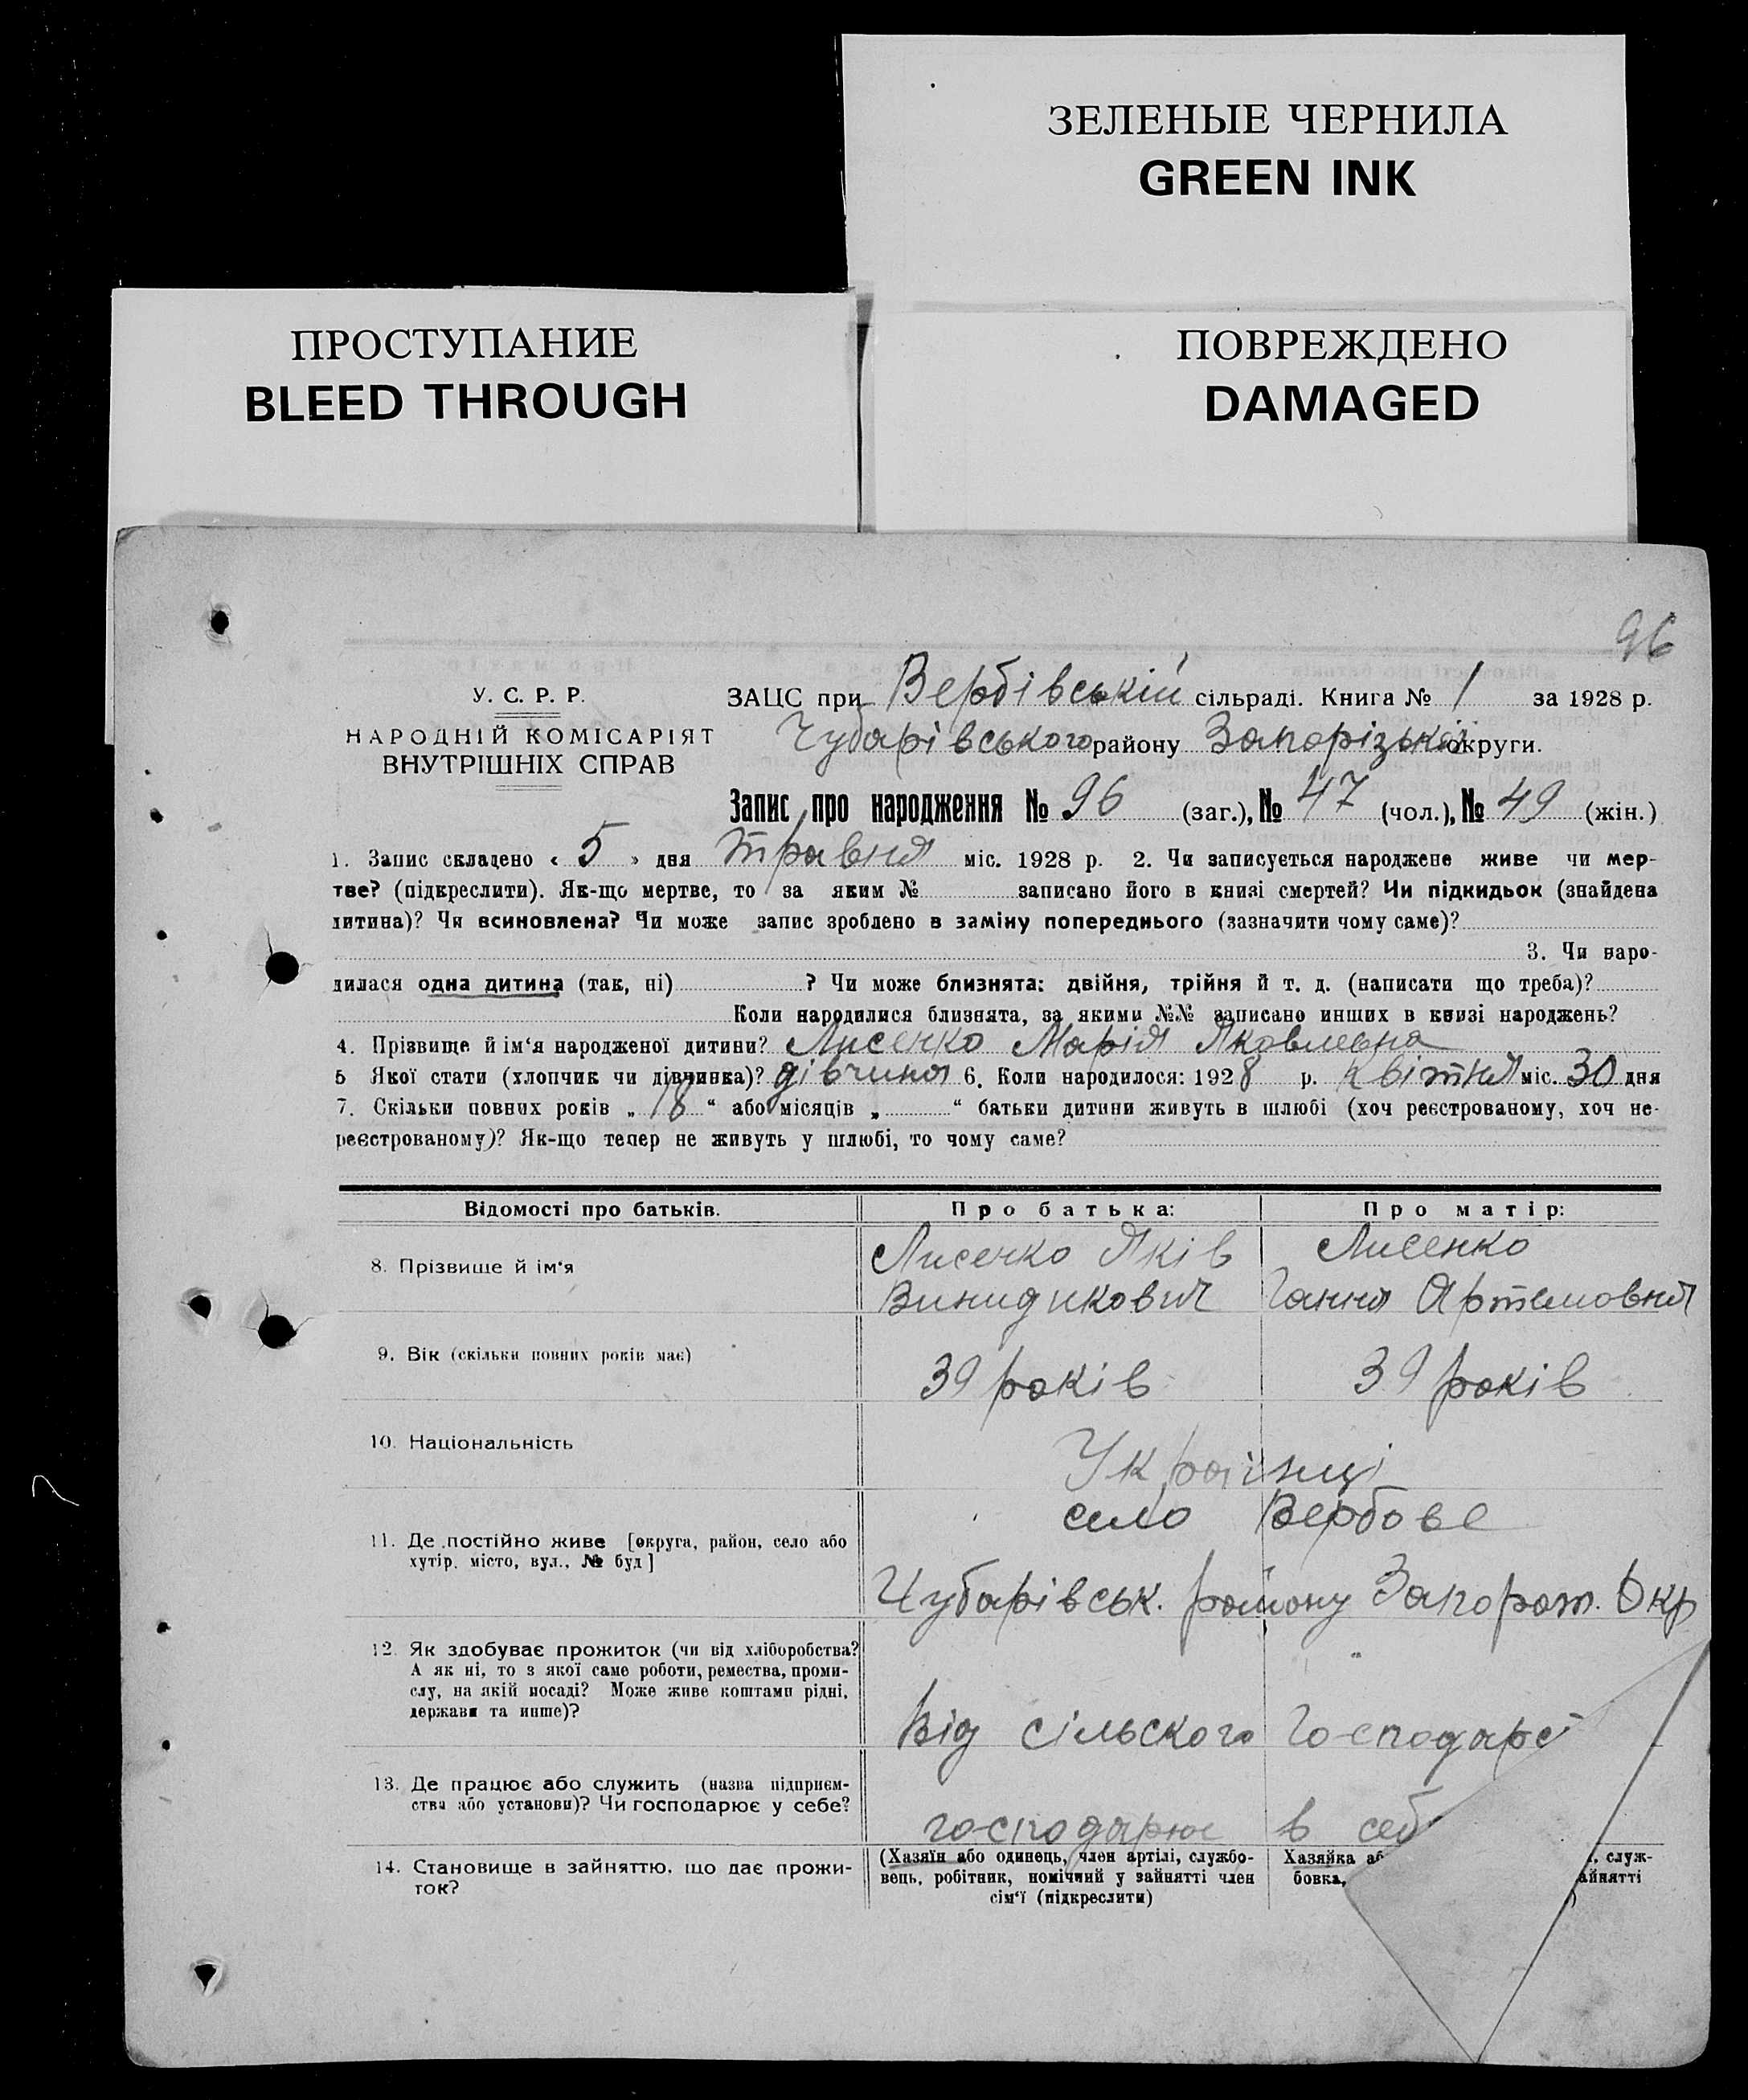 ЗЕЛЕНЫЕ ЧЕРНИЛА
GREEN INK
ПРОСТУПАНИЕ
BLEED THROUGH
ПОВРЕЖДЕНО
DAMAGED
96
У. С. Р. Р.
НАРОДНІЙ КОМІСАРІЯТ
ВНУТРІШНІХ СПРАВ
ЗАЦС при Вербівській сільраді. Книга № 1 за 1928 р.
Чубарівського району Запорізької округи.
Запис про народження № 96 (заг.), № 47 (чол.), № 49 (жін.)
1. Запис складено « 5 » дня травня міс. 1928 р. 2. Чи записується народжене живе чи мер-
тве? (підкреслити). Як-що мертве, то за яким № записано його в книзі смертей? Чи підкидьок (знайдена
дитина)? Чи всиновлена? Чи може запис зроблено в заміну попереднього (зазначити чому саме)?
3. Чи наро-
дилася одна дитина (так, ні) ? Чи може близнята: двійня, трійня й т. д. (написати що треба)?
Коли народилися близнята, за якими №№ записано инших в книзі народжень?
4. Прізвище й ім'я народженої дитини? Лисенко Марія Яковлевна
5 Якої стати (хлопчик чи дівчинка)? дівчина 6. Коли народилося: 1928 р. квітня міс. 30 дня
7. Скільки повних років „ 18 " або місяців „ " батьки дитини живуть в шлюбі (хоч реєстрованому, хоч не-
реєстрованому)? Як-що тепер не живуть у шлюбі, то чому саме?
Відомості про батьків. Про батька: Про матір:
8. Прізвище й ім'я Лисенко Яків Лисенко
Винидикович Ганна Артемовна
9. Вік (скільки повних років має) 39 років 39 років
10. Національність Українці
село Вербове
11. Де постійно живе [округа, район, село або
хутір, місто, вул., № буд]
Чубарівськ. району Запорож. Окр
12. Як здобуває прожиток (чи від хліборобства?
А як ні, то з якої саме роботи, ремества, проми-
слу, на якій посаді? Може живе коштами рідні,
держави та инше)?
Від сільского господарс
13. Де працює або служить (назва підприєм-
ства або установи)? Чи господарює у себе?
господарює в себ
14. Становище в зайняттю, що дає прожи-
ток?
(Хазяїн або одинець, член артілі, службо-
вець, робітник, помічний у зайнятті член
сім'ї (підкреслити)
Хазяйка аб , служ-
бовка, айнятті
)